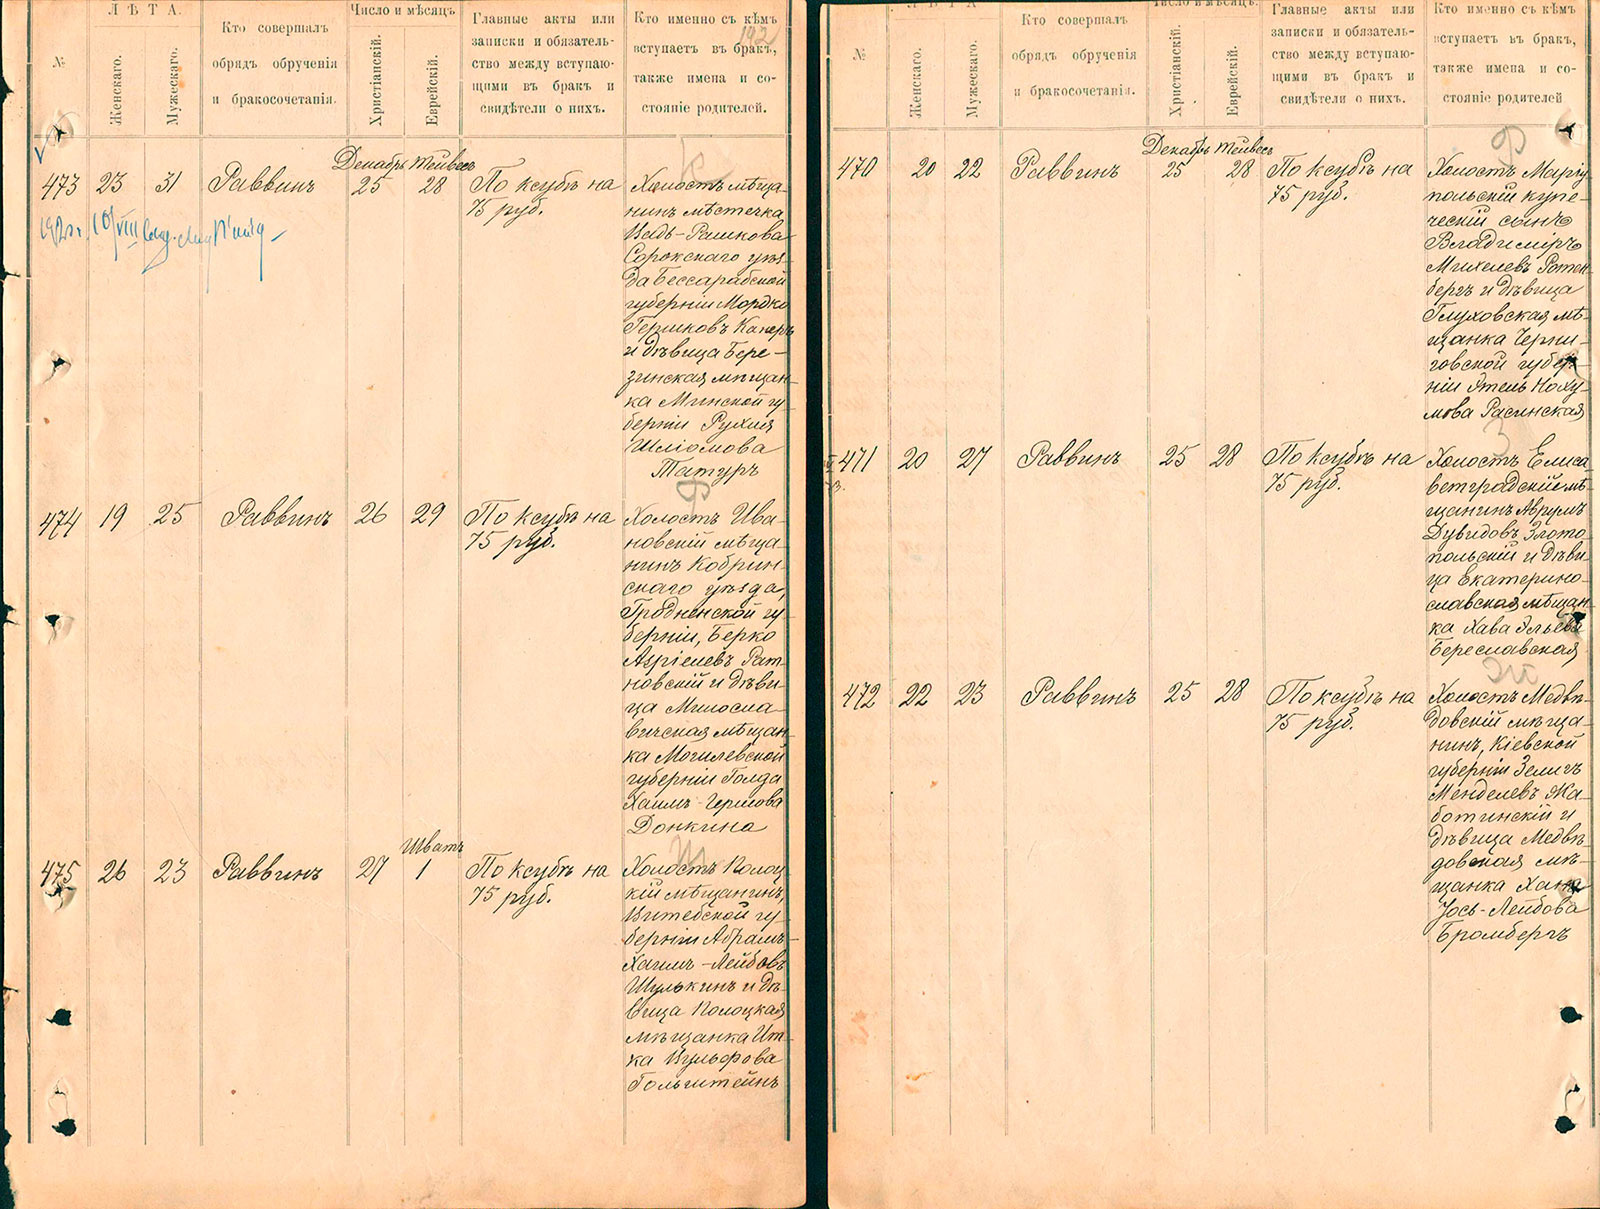 ЛѢТА.
№
Женскаго.
Мужескаго.
Кто совершалъ
обрядъ обрученія
и бракосочетанія.
Число и мѣсяцъ
Христіанскій.
Еврейскій.
Главные акты или
записки и обязатель-
ство между вступаю-
щими въ бракъ и
свидѣтели о нихъ.
Кто именно съ кѣмъ
вступаетъ въ бракъ,
также имена и со-
стояніе родителей.
192
473 23 31 Раввинъ Декабрь 25 Тейвесъ 28
По ксубѣ на
75 руб.
Холостъ мѣща-
нинъ мѣстечка
Вадъ-Рашкова
Сорокскаго уѣз-
да Бессарабской
губерніи Мордко
Гершковъ Канеръ
и дѣвица Бере-
зинская мѣщан-
ка Минской гу-
берніи Рухля
Шліомова
Татуръ
474 19 25 Раввинъ 26 29
По ксубѣ на
75 руб.
Холостъ Ива-
новскій мѣща-
нинъ Кобрин-
скаго уѣзда,
Гродненской гу-
берніи, Берко
Азріелевъ Рат-
новскій и дѣви-
ца Милосла-
вичская мѣщан-
ка Могилевской
губерніи Голда
Хаимъ-Гершова
Донкина
475 26 23 Раввинъ 27 Шватъ 1
По ксубѣ на
75 руб.
Холостъ Полоц-
кій мѣщанинъ,
Витебской гу-
берніи Абрамъ-
Хаимъ-Лейбовъ
Шулькинъ и дѣ-
вица Полоцкая
мѣщанка Ит-
ка Вульфова
Гольштейнъ
ЛѢТА
№
Женскаго.
Мужескаго.
Кто совершалъ
обрядъ обрученія
и бракосочетанія.
Число и мѣсяцъ.
Христіанскій.
Еврейскій.
Главные акты или
записки и обязатель-
ство между вступаю-
щими въ бракъ и
свидѣтели о нихъ.
Кто именно съ кѣмъ
вступаетъ въ бракъ,
также имена и со-
стояніе родителей
470 20 22 Раввинъ Декабрь 25 Тейвесъ 28
По ксубѣ на
75 руб.
Холостъ Маріу
польскій купе-
ческій сынъ
Владиміръ
Михелевъ Ротен-
бергъ и дѣвица
Глуховская мѣ-
щанка Черни-
говской губер-
ніи Этель Ноху-
мова Расинская
471 20 27 Раввинъ 25 28
По ксубѣ на
75 руб.
Холостъ Елиса
ветградскій мѣ-
щанинъ Аврумъ
Дувидовъ Злото-
польскій и дѣви-
ца Екатерино-
славская мѣщан-
ка Хава Эльева
Береславская
472 22 23 Раввинъ 25 28
По ксубѣ на
75 руб.
Холостъ Медвѣ-
довскій мѣща-
нинъ, Кіевской
губерніи Зеликъ
Менделевъ Жа-
ботинскій и
дѣвица Медвѣ-
довская мѣ-
щанка Хана
Іось-Лейбова
Бромбергъ